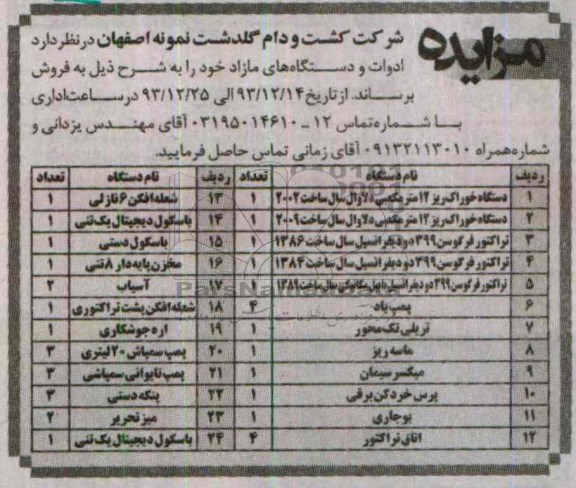 مزایده
شرکت کشت و دام گلدشت نمونه اصفهان در نظر دارد
ادوات و دستگاه‌های مازاد خود را به شرح ذیل به فروش
برساند. از تاریخ ۹۳/۱۲/۱۴ الی ۹۳/۱۲/۲۵ در ساعت اداری
با شماره تماس ۱۲ ـ ۰۳۱۹۵۰۱۴۶۱۰ آقای مهندس یزدانی و
شماره همراه ۰۹۱۳۲۱۱۳۰۱۰ آقای زمانی تماس حاصل فرمایید.
ردیف نام دستگاه تعداد ردیف نام دستگاه تعداد
۱ دستگاه خوراک ریز ۱۲ متر مکعبی دلاوال سال ساخت ۲۰۰۲ ۱ ۱۳ شعله افکن ۶ نازلی ۱
۲ دستگاه خوراک ریز ۱۲ متر مکعبی دلاوال سال ساخت ۲۰۰۹ ۱ ۱۴ باسکول دیجیتال یک تنی ۱
۳ تراکتور فرگوسن ۳۹۹ دو دیفرانسیل سال ساخت ۱۳۸۶ ۱ ۱۵ باسکول دستی ۱
۴ تراکتور فرگوسن ۳۹۹ دو دیفرانسیل سال ساخت ۱۳۸۴ ۱ ۱۶ مخزن پایه دار ۸ تنی ۱
۵ تراکتور فرگوسن ۳۹۹ دو دیفرانسیل با بیل مکانیکی سال ساخت ۱۳۸۱ ۱ ۱۷ آسیاب ۲
۶ پمپ باد ۴ ۱۸ شعله افکن پشت تراکتوری ۱
۷ تریلی تک محور ۱ ۱۹ اره جوشکاری ۱
۸ ماسه ریز ۱ ۲۰ پمپ سمپاش ۲۰ لیتری ۳
۹ میکسر سیمان ۱ ۲۱ پمپ تایوانی سمپاشی ۳
۱۰ پرس خردکن برقی ۱ ۲۲ پنکه دستی ۳
۱۱ بوجاری ۱ ۲۳ میز تحریر ۲
۱۲ اتاق تراکتور ۴ ۲۴ باسکول دیجیتال یک تنی ۱